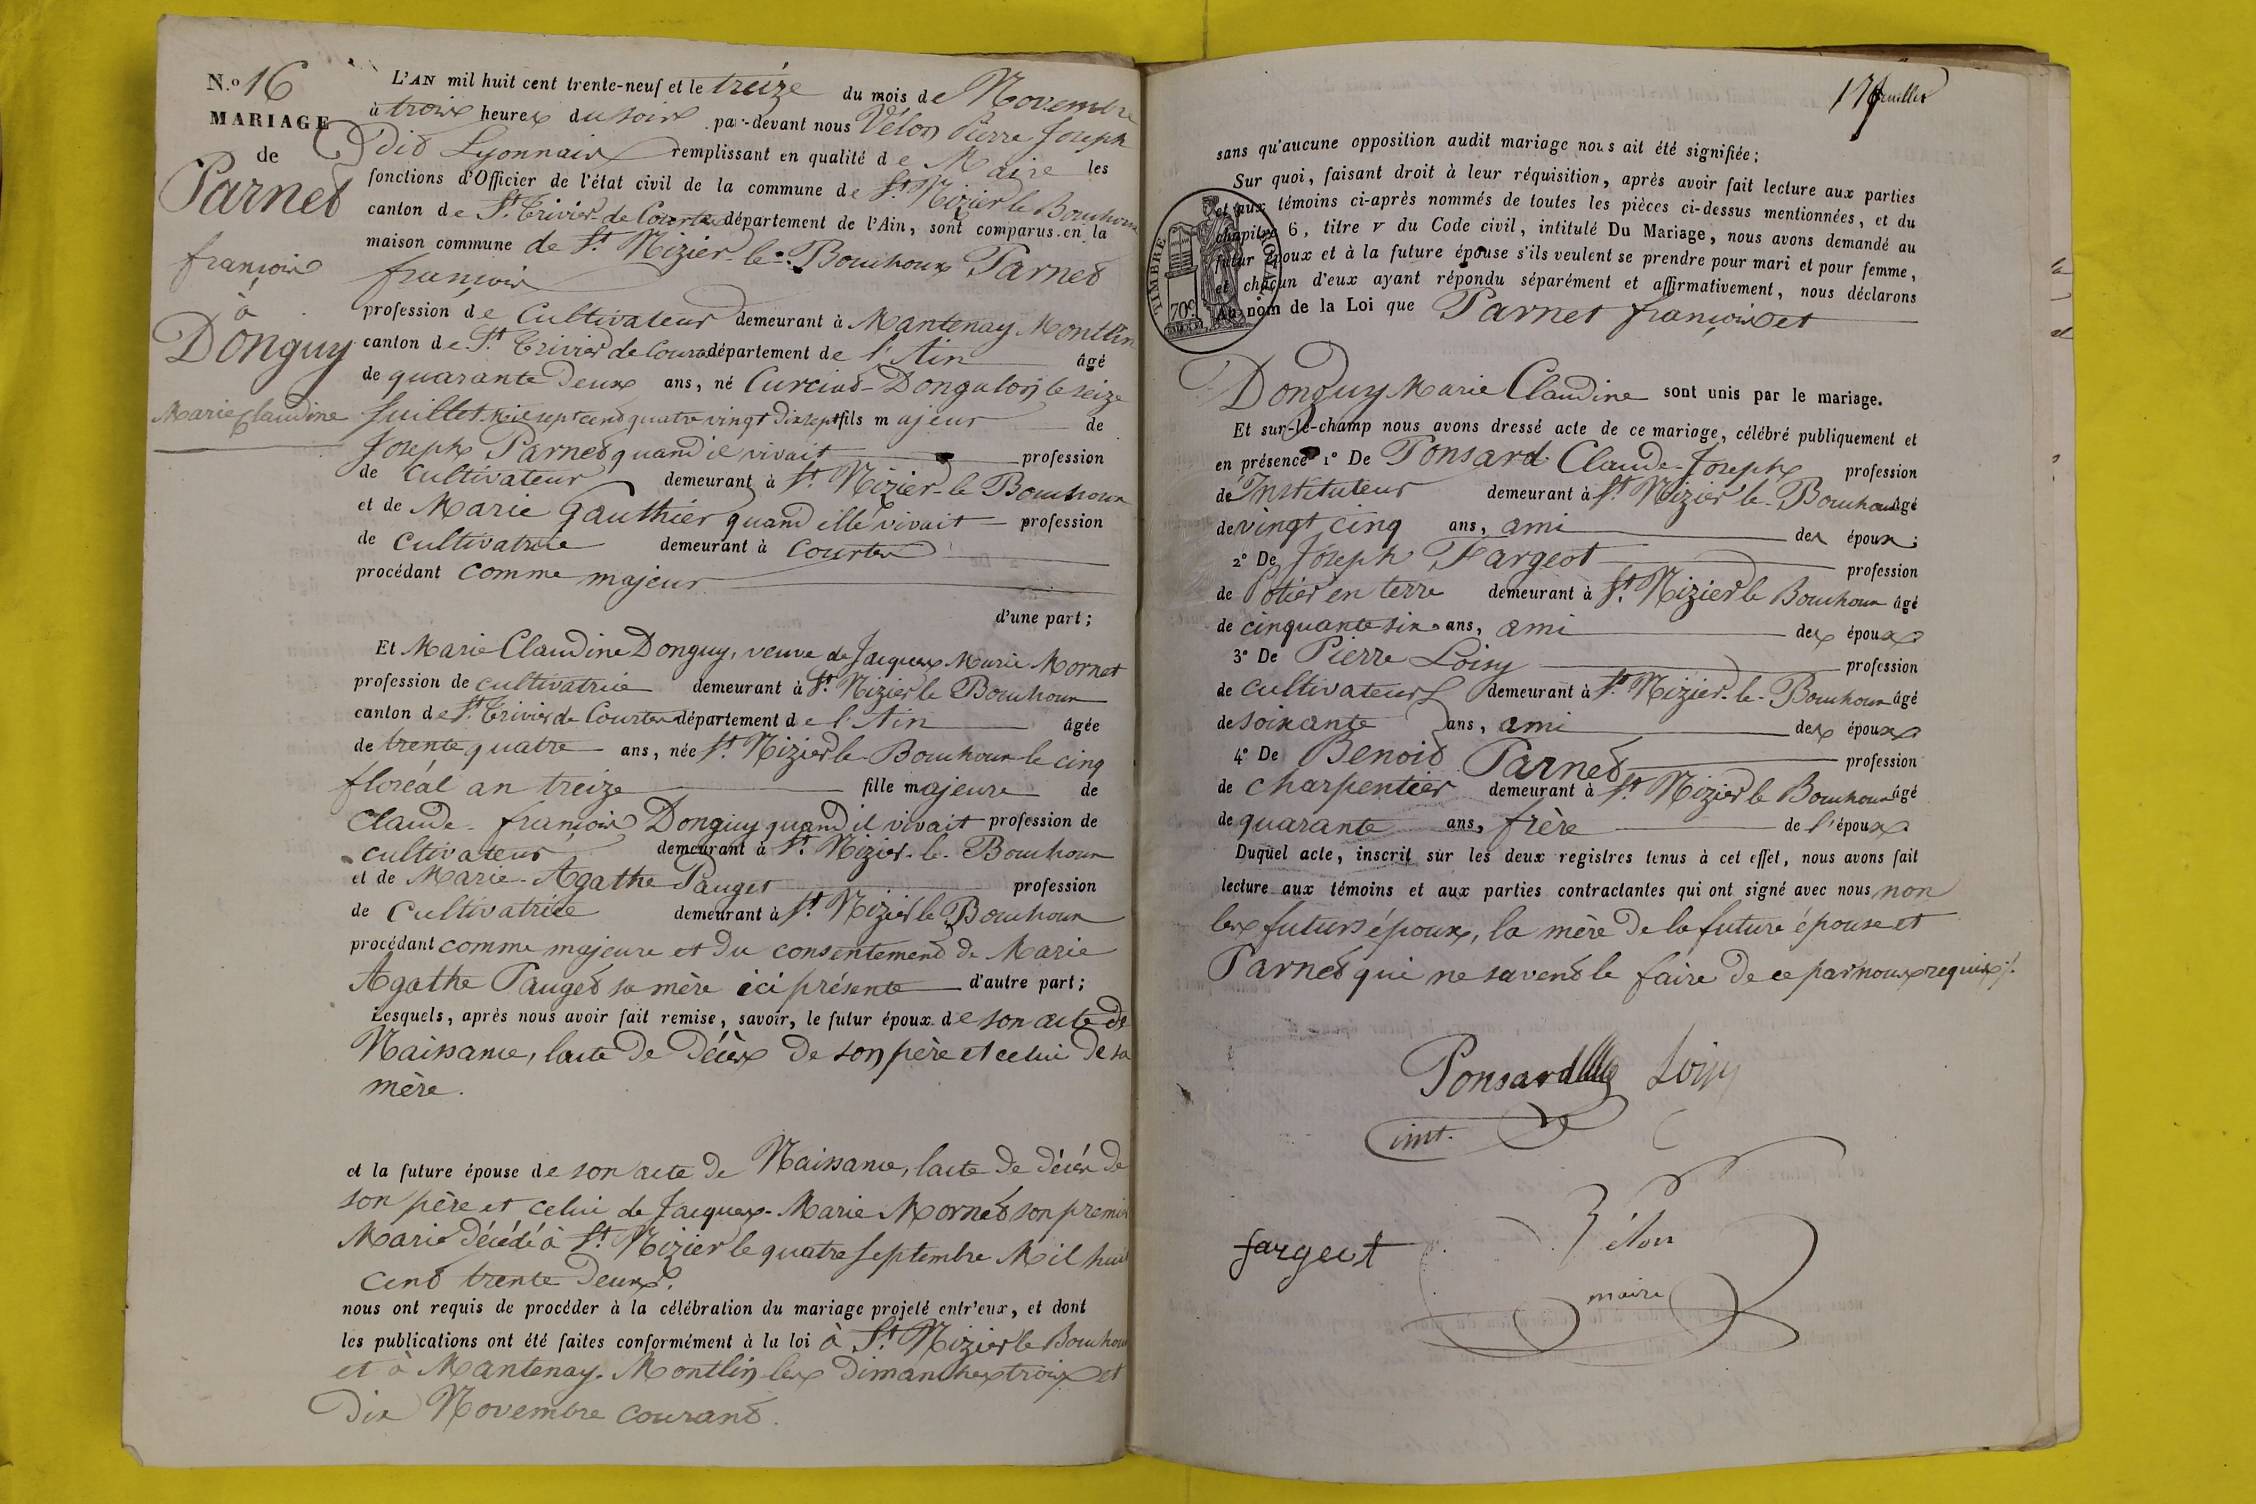 N.º 16
MARIAGE
de
Parnet
françois
à
Donguy
Marie Claudine
L'AN mil huit cent trente-neuf et le treize du mois de Novembre
à trois heures du soir par-devant nous Vélon Pierre Joseph
dit Lyonnais remplissant en qualité de Maire les
fonctions d'Officier de l'état civil de la commune de St Nizier le Bouchoux
canton de St Trivier de Courtes département de l'Ain, sont comparus en la
maison commune de St Nizier-le-Bouchoux Parnet
françois
profession de Cultivateur demeurant à Mantenay Montlin
canton de St Trivier de Courtes département de l'Ain âgé
de quarante deux ans, né Curciat-Dongalon le seize
Juillet mil sept cent quatre vingt dix sept fils majeur de
Joseph Parnet quand il vivait profession
de cultivateur demeurant à St Nizier-le Bouchoux
et de Marie Gauthier quand elle vivait profession
de cultivatrice demeurant à Courtes
procédant comme majeur
d'une part;
Et Marie Claudine Donguy, veuve de Jacques Marie Mornet
profession de cultivatrice demeurant à St Nizier le Bouchoux
canton de St Trivier de Courtes département de l'Ain âgée
de trente quatre ans, née St Nizier le Bouchoux le cinq
floréal an treize fille majeure de
Claude-françois Donguy quand il vivait profession de
cultivateur demeurant à St Nizier-le-Bouchoux
et de Marie-Agathe Pauget profession
de Cultivatrice demeurant à St Nizier le Bouchoux
procédant comme majeure et du consentement de Marie
Agathe Pauget sa mère ici présente d'autre part;
Lesquels, après nous avoir fait remise, savoir, le futur époux de son acte de
Naissance, l'acte de décès de son père et celui de sa
mère.
et la future épouse de son acte de Naissance, l'acte de décès de
son père et celui de Jacques-Marie Mornet son premier
Mari décédé à St Nizier le quatre Septembre Mil huit
cent trente deux.
nous ont requis de procéder à la célébration du mariage projeté entr'eux, et dont
les publications ont été faites conformément à la loi à St Nizier le Bouchoux
et à Mantenay-Montlin les dimanches trois et
dix Novembre courant.
feuillet
sans qu'aucune opposition audit mariage nous ait été signifiée;
Sur quoi, faisant droit à leur réquisition, après avoir fait lecture aux parties
et aux témoins ci-après nommés de toutes les pièces ci-dessus mentionnées, et du
chapitre 6, titre v du Code civil, intitulé Du Mariage, nous avons demandé au
futur époux et à la future épouse s'ils veulent se prendre pour mari et pour femme,
et chacun d'eux ayant répondu séparément et affirmativement, nous déclarons
Au nom de la Loi que Parnet françois et
TIMBRE ROYAL
70c
Donguy Marie Claudine sont unis par le mariage.
Et sur-le-champ nous avons dressé acte de ce mariage, célébré publiquement et
en présence 1º De Ponsard Claude-Joseph profession
de Instituteur demeurant à St Nizier le-Bouchoux âgé
de vingt cinq ans, ami des époux;
2º De Joseph Fargeot profession
de Potier en terre demeurant à St Nizier le Bouchoux âgé
de cinquante six ans, ami des époux
3º De Pierre Loisy profession
de cultivateur demeurant à St Nizier-le-Bouchoux âgé
de soixante ans, ami des époux
4º De Benoit Parnet profession
de charpentier demeurant à St Nizier le Bouchoux âgé
de quarante ans, frère de l'époux
Duquel acte, inscrit sur les deux registres tenus à cet effet, nous avons fait
lecture aux témoins et aux parties contractantes qui ont signé avec nous non
les futurs époux, la mère de la future épouse et
Parnet qui ne savent le faire de ce par nous requis.
Ponsard Loisy
inst.
Vélon
fargeot
maire